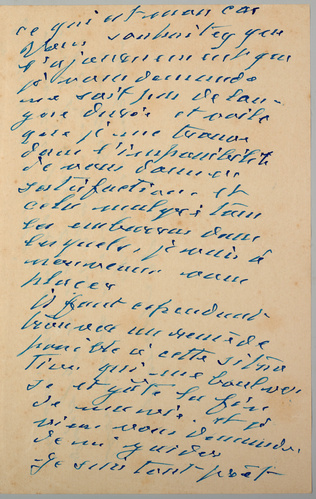 ce qui est mon cas
Vous souhaitez que
l'ajournement que
je vous demande
ne soit pas de lon-
gue durée et voilà
que je me trouve
dans l'impossibilité
de vous donner
satisfaction et
cela malgré tous
les embarras dans
lesquels je vais à
nouveau vous
placer
Il faut cependant
trouver un remède
possible à cette situa
tion qui me boulever
se et gâte la fin
de ma vie et je
viens vous demander
de me guider
Je suis tout prêt